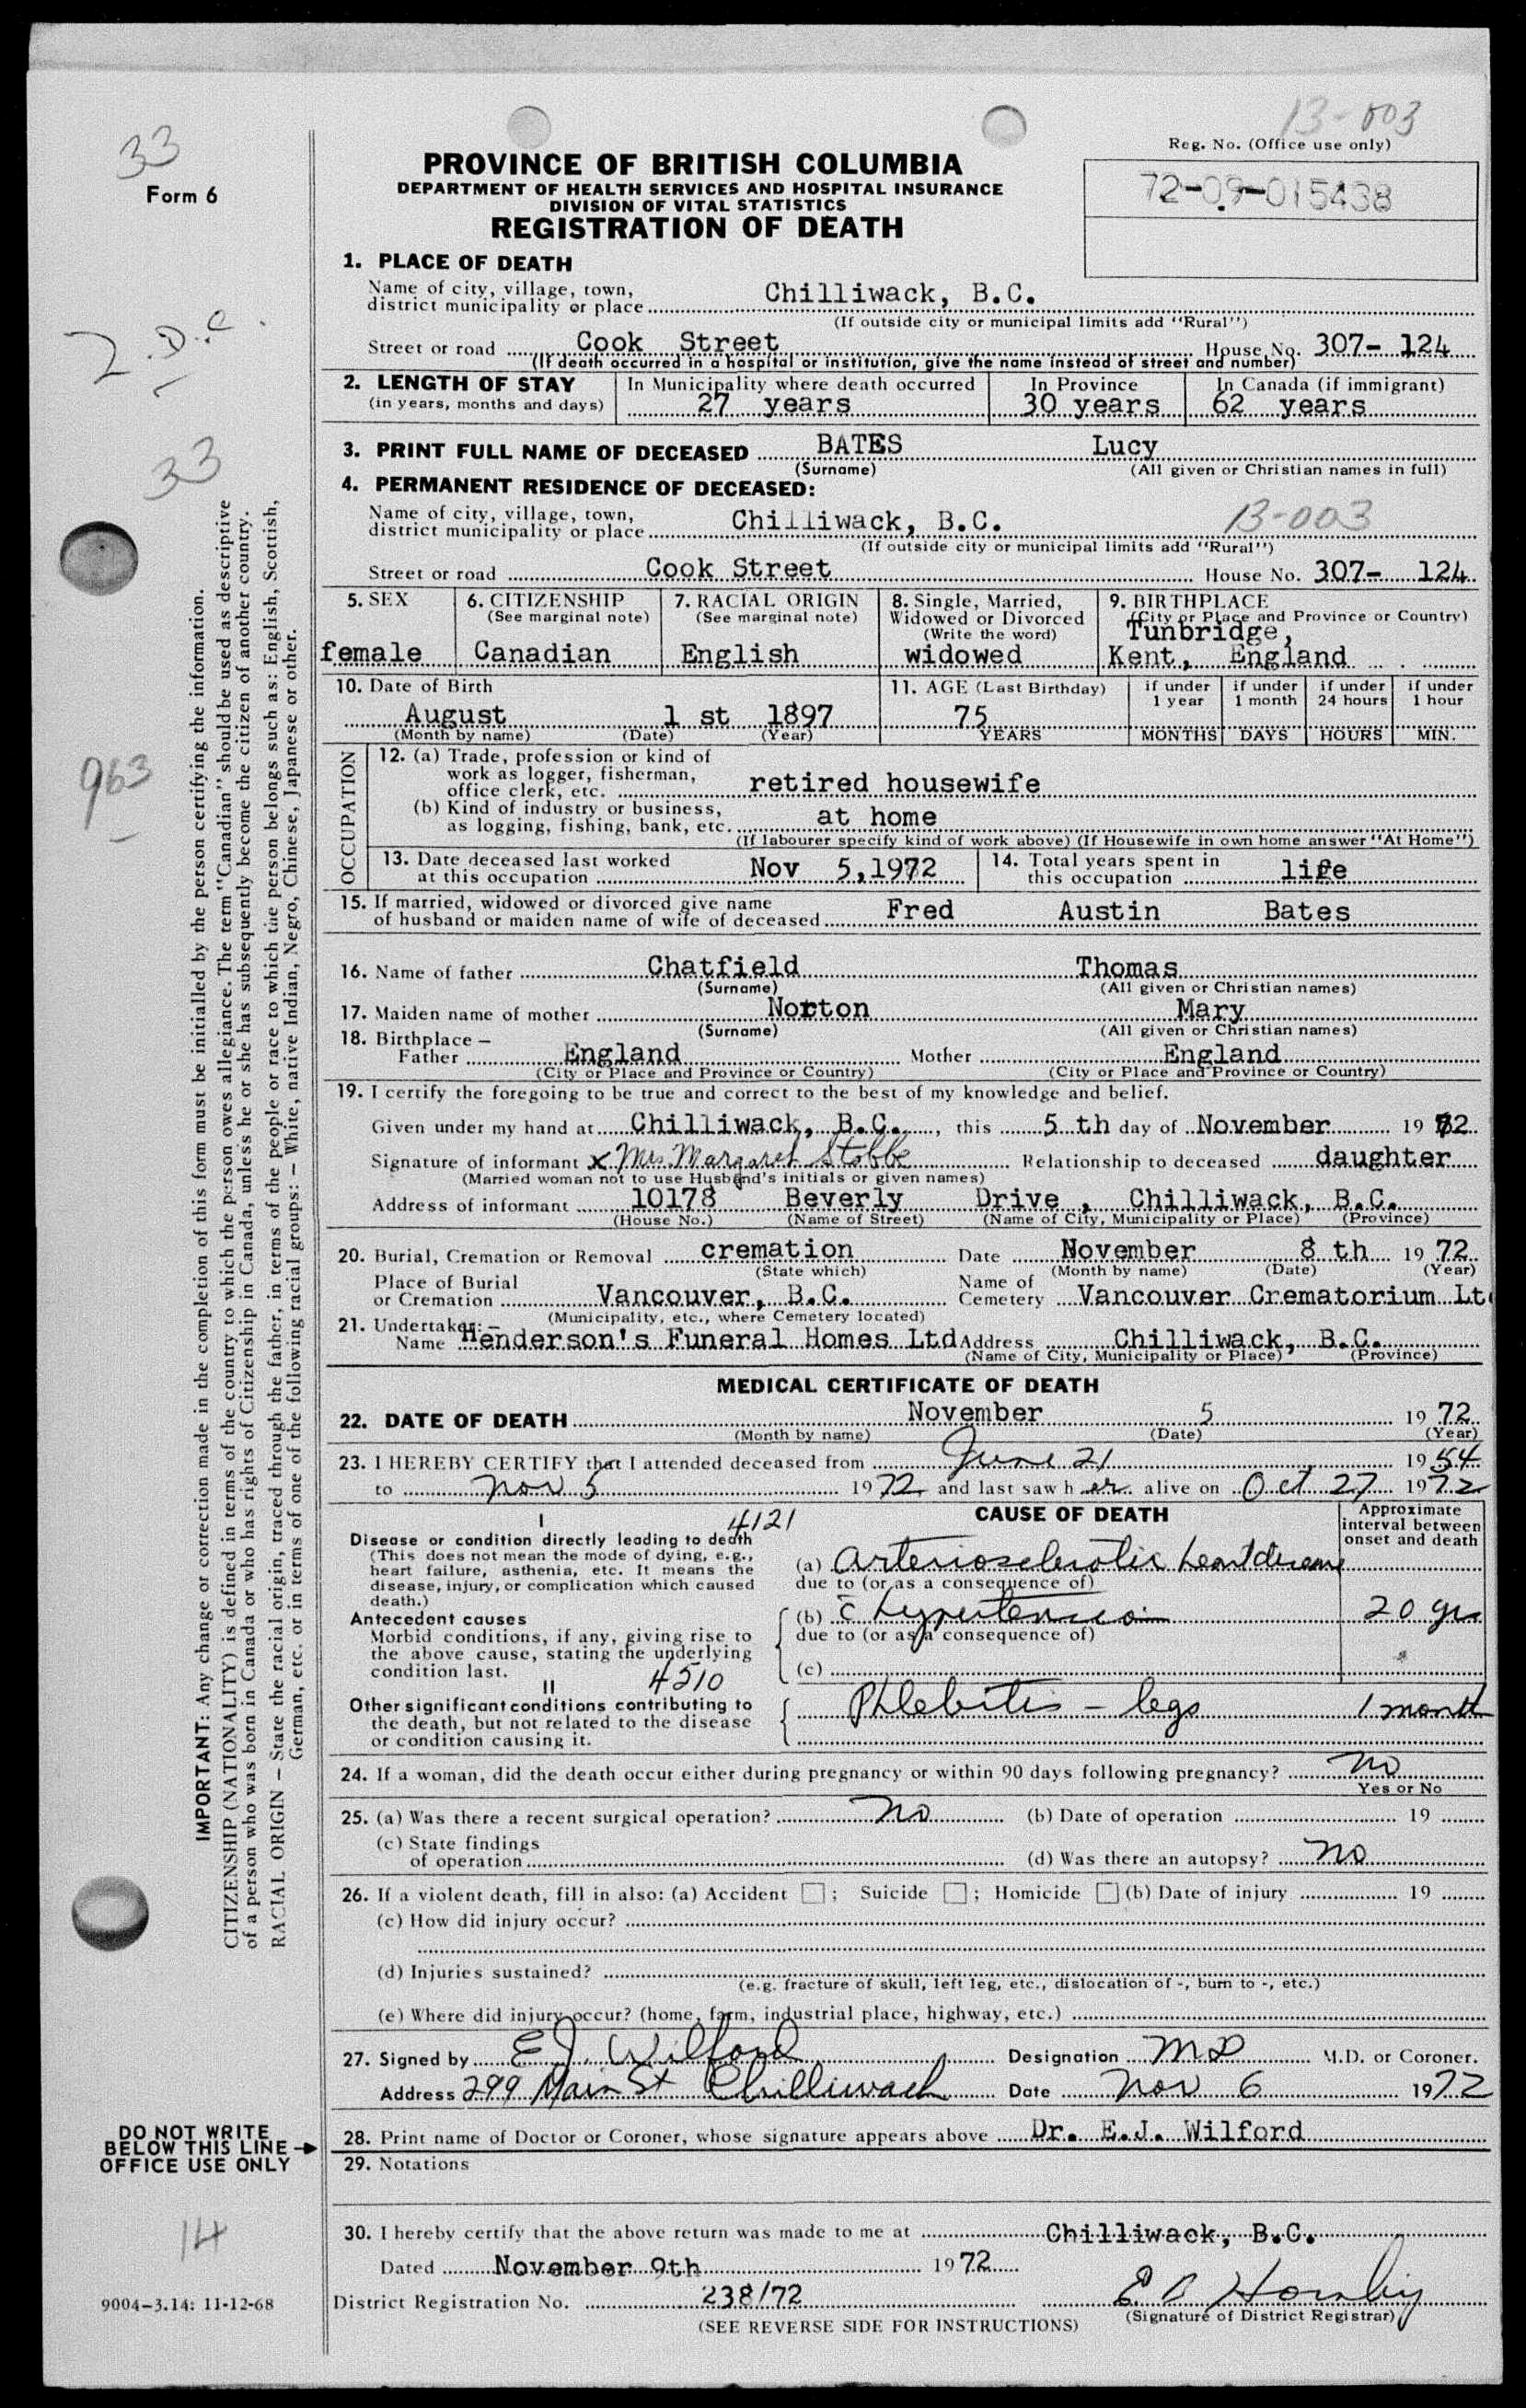 13-003
Reg. No. (Office use only)
72-09-015438
33
Form 6
PROVINCE OF BRITISH COLUMBIA
DEPARTMENT OF HEALTH SERVICES AND HOSPITAL INSURANCE
DIVISION OF VITAL STATISTICS
REGISTRATION OF DEATH
1. PLACE OF DEATH
Name of city, village, town,
district municipality or place Chilliwack, B.C.
(If outside city or municipal limits add "Rural")
Street or road Cook Street House No. 307- 124
(If death occurred in a hospital or institution, give the name instead of street and number)
2. LENGTH OF STAY In Municipality where death occurred In Province In Canada (if immigrant)
(in years, months and days) 27 years 30 years 62 years
3. PRINT FULL NAME OF DECEASED BATES Lucy
(Surname) (All given or Christian names in full)
33
4. PERMANENT RESIDENCE OF DECEASED:
Name of city, village, town,
district municipality or place Chilliwack, B.C. 13-003
(If outside city or municipal limits add "Rural")
Street or road Cook Street House No. 307- 124
5. SEX 6. CITIZENSHIP 7. RACIAL ORIGIN 8. Single, Married, 9. BIRTHPLACE
(See marginal note) (See marginal note) Widowed or Divorced (City or Place and Province or Country)
(Write the word) Tunbridge,
female Canadian English widowed Kent, England
10. Date of Birth 11. AGE (Last Birthday) if under 1 year if under 1 month if under 24 hours if under 1 hour
August 1 st 1897 75
(Month by name) (Date) (Year) YEARS MONTHS DAYS HOURS MIN.
963
OCCUPATION
12. (a) Trade, profession or kind of
work as logger, fisherman,
office clerk, etc. retired housewife
(b) Kind of industry or business,
as logging, fishing, bank, etc. at home
(If labourer specify kind of work above) (If Housewife in own home answer "At Home")
13. Date deceased last worked 14. Total years spent in
at this occupation Nov 5,1972 this occupation life
15. If married, widowed or divorced give name
of husband or maiden name of wife of deceased Fred Austin Bates
16. Name of father Chatfield Thomas
(Surname) (All given or Christian names)
17. Maiden name of mother Norton Mary
(Surname) (All given or Christian names)
18. Birthplace —
Father England Mother England
(City or Place and Province or Country) (City or Place and Province or Country)
19. I certify the foregoing to be true and correct to the best of my knowledge and belief.
Given under my hand at Chilliwack, B.C., this 5 th day of November 19 72
Signature of informant x Mrs. Margaret Stobbe Relationship to deceased daughter
(Married woman not to use Husband's initials or given names)
Address of informant 10178 Beverly Drive , Chilliwack, B.C.
(House No.) (Name of Street) (Name of City, Municipality or Place) (Province)
20. Burial, Cremation or Removal cremation Date November 8 th 19 72
(State which) (Month by name) (Date) (Year)
Place of Burial Name of
or Cremation Vancouver, B.C. Cemetery Vancouver Crematorium Lt
(Municipality, etc., where Cemetery located)
21. Undertaker: —
Name Henderson's Funeral Homes Ltd Address Chilliwack, B.C.
(Name of City, Municipality or Place) (Province)
MEDICAL CERTIFICATE OF DEATH
22. DATE OF DEATH November 5 19 72
(Month by name) (Date) (Year)
23. I HEREBY CERTIFY that I attended deceased from June 21 19 54
to Nov 5 19 72 and last saw her alive on Oct 27 19 72
I 4121 CAUSE OF DEATH Approximate
interval between
onset and death
Disease or condition directly leading to death
(This does not mean the mode of dying, e.g.,
heart failure, asthenia, etc. It means the
disease, injury, or complication which caused
death.)
(a) Arteriosclerotic heart disease
due to (or as a consequence of)
Antecedent causes
Morbid conditions, if any, giving rise to
the above cause, stating the underlying
condition last.
(b) c̄ hypertension 20 yrs
due to (or as a consequence of)
(c)
II 4510
Other significant conditions contributing to
the death, but not related to the disease
or condition causing it.
Phlebitis - legs 1 month
24. If a woman, did the death occur either during pregnancy or within 90 days following pregnancy? no
Yes or No
25. (a) Was there a recent surgical operation? no (b) Date of operation 19
(c) State findings
of operation (d) Was there an autopsy? no
26. If a violent death, fill in also: (a) Accident ; Suicide ; Homicide (b) Date of injury 19
(c) How did injury occur?
(d) Injuries sustained?
(e.g. fracture of skull, left leg, etc., dislocation of -, burn to -, etc.)
(e) Where did injury occur? (home, farm, industrial place, highway, etc.)
27. Signed by E J. Wilford Designation MD M.D. or Coroner.
Address 299 Main St Chilliwack Date Nov 6 1972
28. Print name of Doctor or Coroner, whose signature appears above Dr. E.J. Wilford
DO NOT WRITE
BELOW THIS LINE
OFFICE USE ONLY
29. Notations
14
30. I hereby certify that the above return was made to me at Chilliwack, B.C.
Dated November 9th 19 72
District Registration No. 238/72 Hornby
(Signature of District Registrar)
9004-3.14: 11-12-68
(SEE REVERSE SIDE FOR INSTRUCTIONS)
IMPORTANT: Any change or correction made in the completion of this form must be initialled by the person certifying the information.
CITIZENSHIP (NATIONALITY) is defined in terms of the country to which the person owes allegiance. The term "Canadian" should be used as descriptive
of a person who was born in Canada or who has rights of Citizenship in Canada, unless he or she has subsequently become the citizen of another country.
RACIAL ORIGIN — State the racial origin, traced through the father, in terms of the people or race to which the person belongs such as: English, Scottish,
German, etc. or in terms of one of the following racial groups: — White, native Indian, Negro, Chinese, Japanese or other.